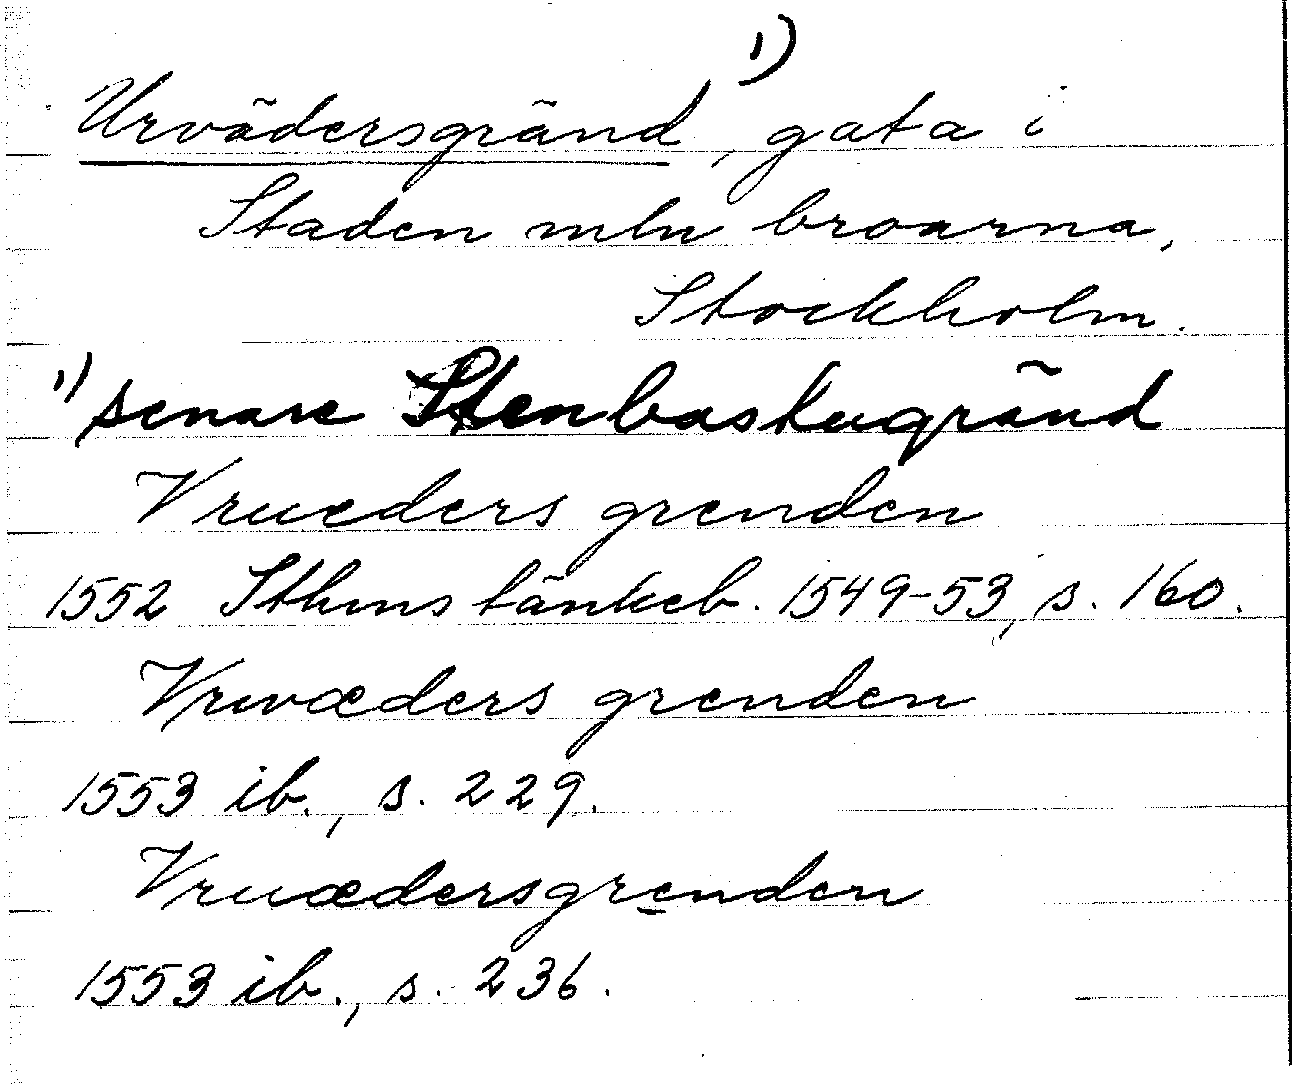 Urvädersgränd,¹⁾ gata i
Staden mln broarna,
Stockholm.
¹⁾ senare Stenbastugränd
Vrueders grenden
1552 Sthms tänkeb. 1549-53, s. 160.
Vrwæders grenden
1553 ib., s. 229.
Vruædersgrenden
1553 ib., s. 236.